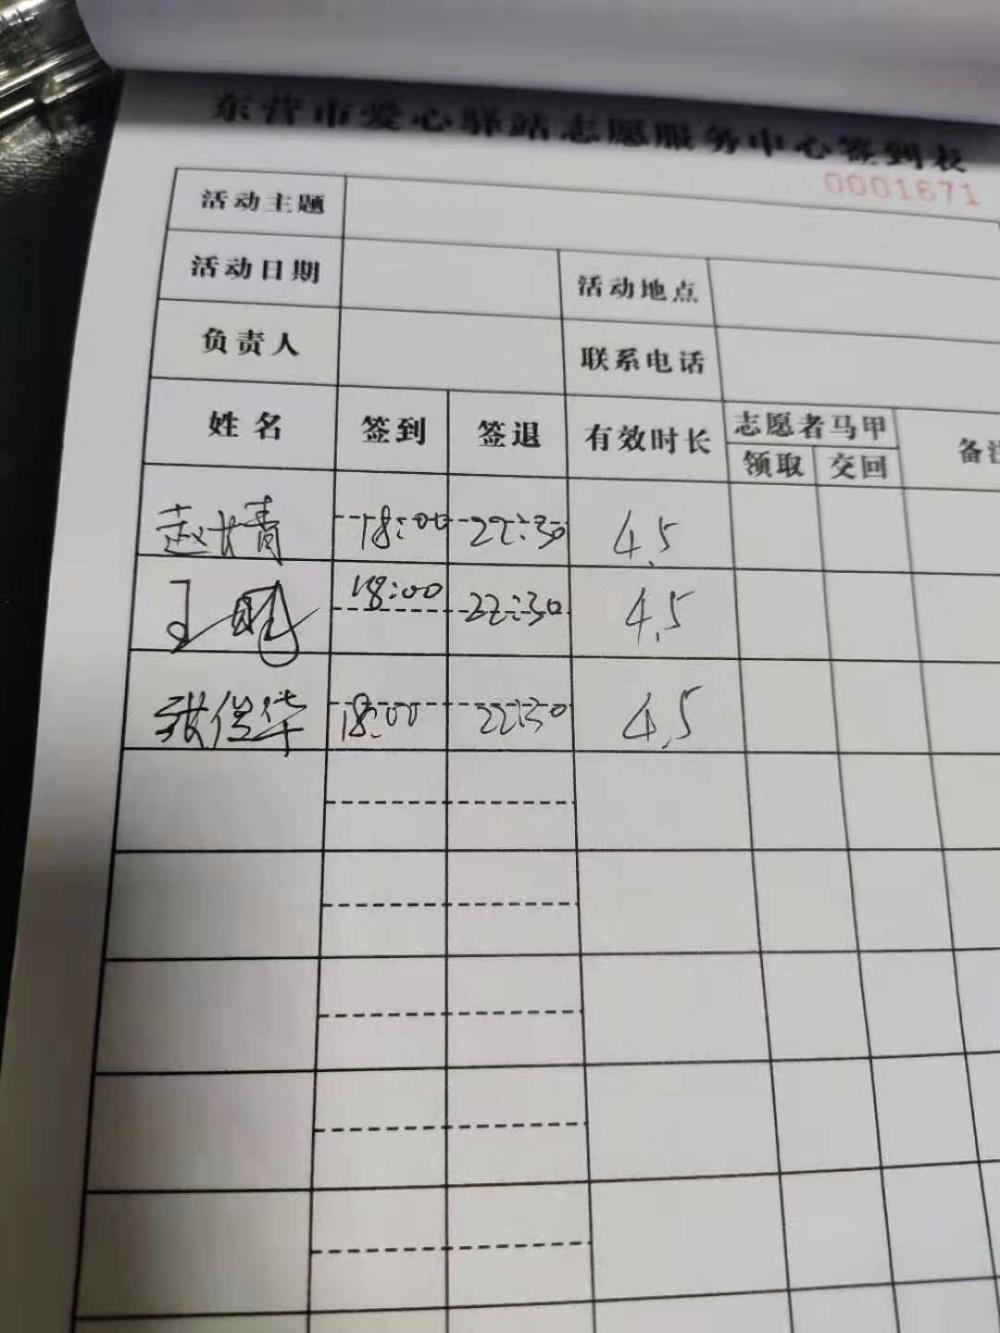 东营市爱心驿站志愿服务中心签到表
0001671
活动主题
活动日期 活动地点
负责人 联系电话
姓名 签到 签退 有效时长 志愿者马甲 备注
领取 交回
18:00 22:30 4.5
王 18:00 22:30 4.5
张佳华 18:00 22:30 4.5